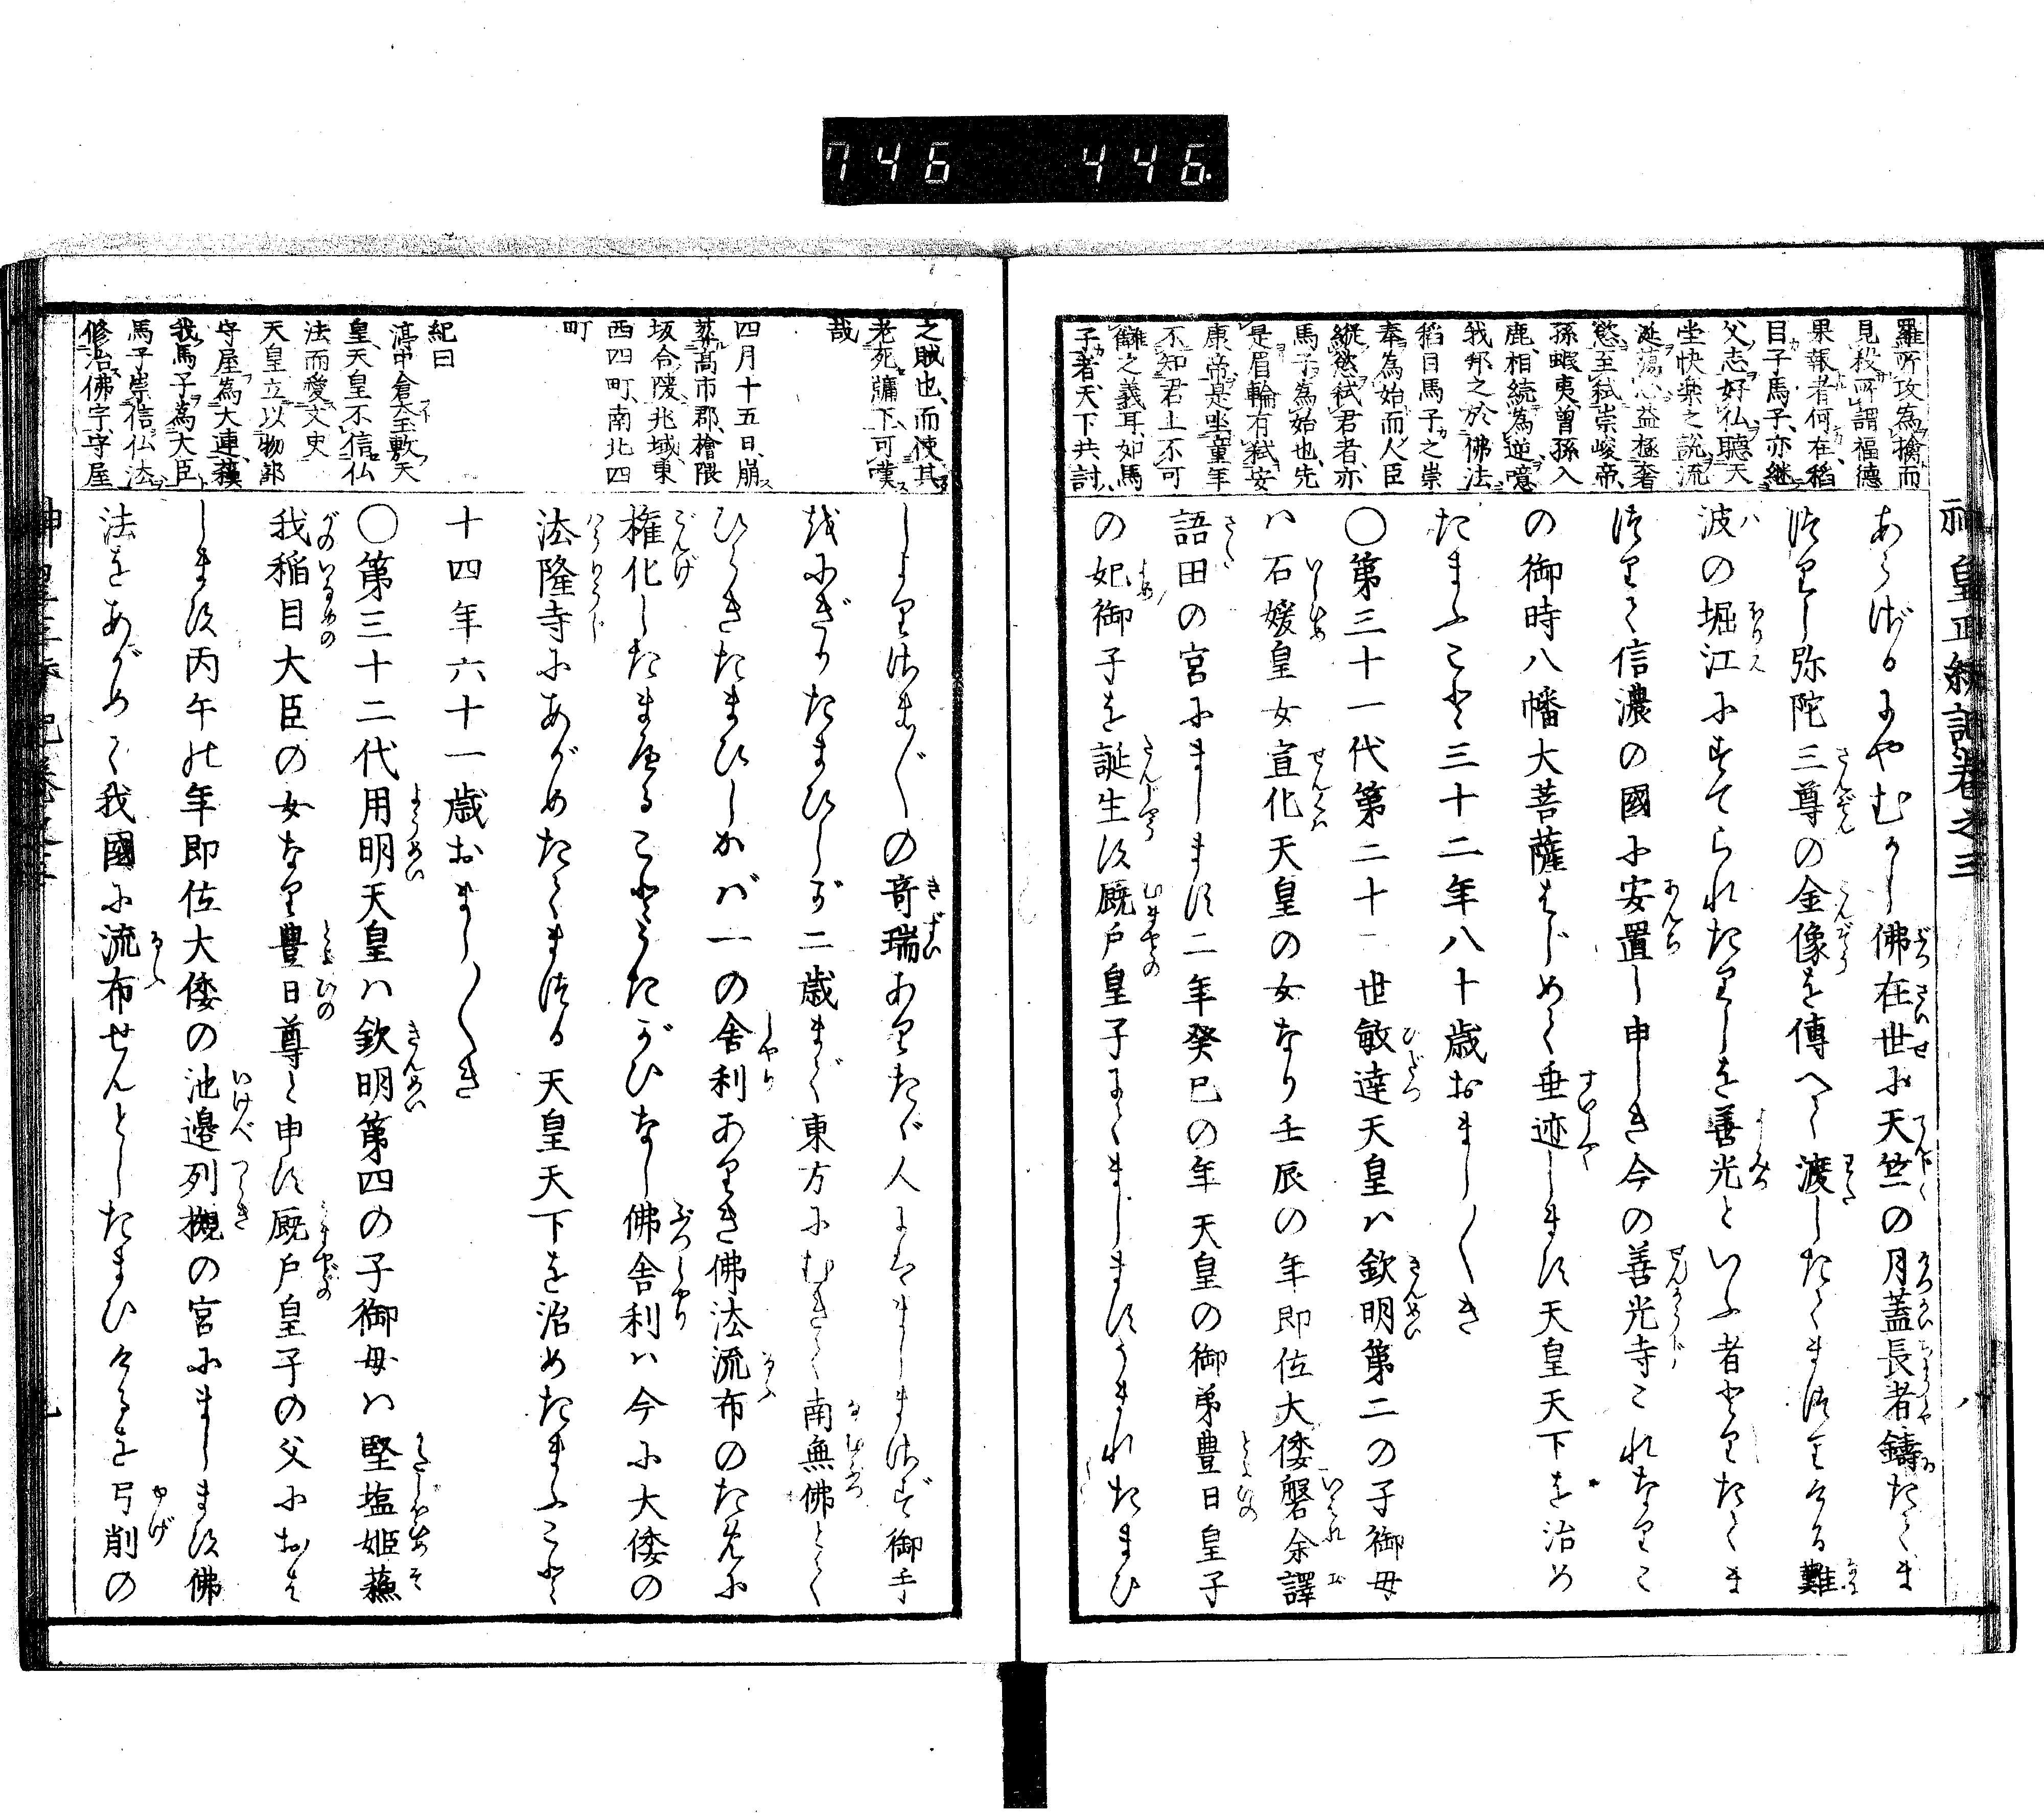 746 446.
神皇正統記巻之三
八
羅所攻為擒而
見殺所謂福徳
果報者何在稲
目子馬子亦継
父志好仏聴天
坐快楽之説流
涎蕩心益極奢
慾至弑崇峻帝
孫蝦夷曽孫入
鹿相続為逆噫
我邦之於佛法
稲目馬子之崇
奉為始而人臣
縦慾弑君者亦
馬子為始也先
是眉輪有弑安
康帝是坐童年
不知君上不可
讎之義耳如馬
子者天下共討
あらざるにやむかし佛在世に天竺の月蓋長者鑄たてま
つりし弥陀三尊の金像を傳へて渡したてまつりける難
波の堀江にすてられたりしを善光といふ者とりたてま
つりて信濃の國に安置し申しき今の善光寺これなりこ
の御時八幡大菩薩はじめて垂迹します天皇天下を治め
たまふこと三十二年八十歳おまし〳〵き
〇第三十一代第二十一世敏達天皇ハ欽明第二の子御母
ハ石媛皇女宣化天皇の女なり壬辰の年即位大倭磐余譯
語田の宮にまします二年癸巳の年天皇の御弟豊日皇子
の妃御子を誕生す厩戸皇子にてましますうまれたまひ
之賊也而使其
老死牖下可嘆
哉
四月十五日崩
葬高市郡檜隈
坂合陵兆域東
西四町南北四
町
紀曰
渟中倉太玉敷天
皇天皇不信仏
法而愛文史
天皇立以物部
守屋為大連蘇
我馬子為大臣
馬子崇信仏法
修治佛宇守屋
しよりさま〴〵の奇瑞ありたゞ人にハましまさず御手
をにぎりたまひしが二歳まで東方にむきて南無佛とて
ひらきたまひしかバ一の舎利ありき佛法流布のために
権化したまへることうたがひなし佛舎利ハ今に大倭の
法隆寺にあがめたてまつる天皇天下を治めたまふこと
十四年六十一歳おまし〳〵き
〇第三十二代用明天皇ハ欽明第四の子御母ハ堅塩姫蘇
我稲目大臣の女なり豊日尊と申す厩戸皇子の父におは
します丙午の年即位大倭の池邉列槻の宮にまします佛
法をあがめて我國に流布せんとしたまひけるを弓削の